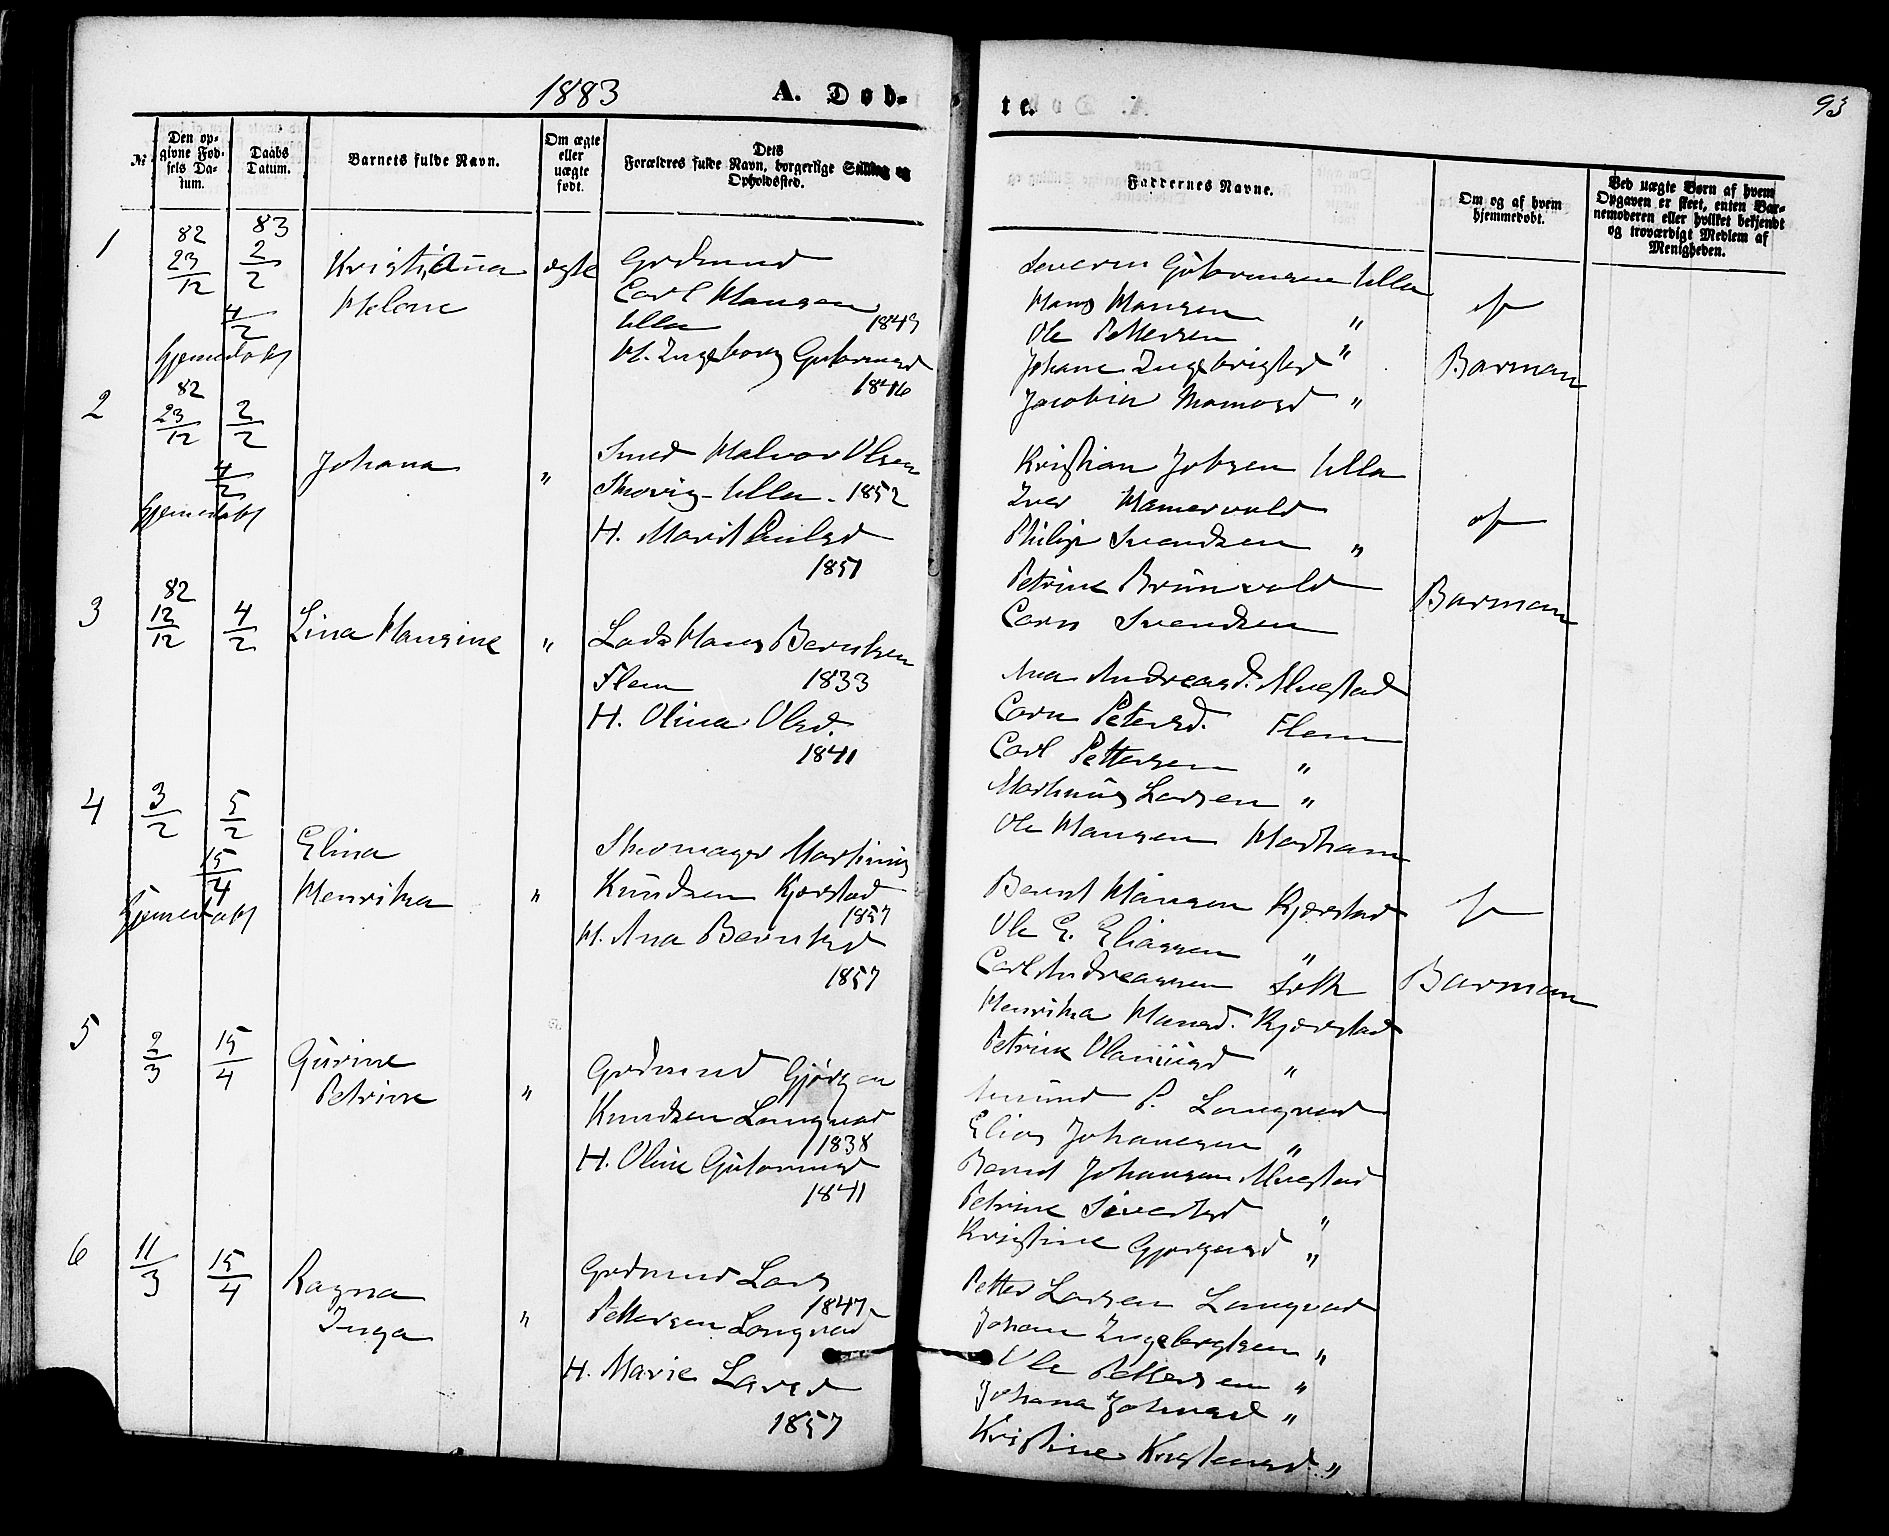 1883
A. Døb-
te.
93
No
Den op-
givne Fød-
sels Da-
tum.
Daabs
Datum.
Barnets fulde Navn.
Om ægte
eller
uægte
født.
Dets
Forældres fulde Navn, borgerlige Stilling og
Opholdssted.
Faddernes Navne.
Om og af hvem
hjemmedøbt.
Ved uægte Børn af hvem
Opgaven er skeet, enten Bar-
nemoderen eller hvilket bekjendt
og troværdigt Medlem af
Menigheden.
1
82
23/12
83
2/2
4/2
hjemedøbt
Kristiana
Helene
ægte
Grdmand
Carl Hansen
Ulla 1849
H. Ingeborg Gutormsd
1846
Severin Gutormsen Ulla
Hans Hansen "
Ole Pettersen "
Johane Ingebrigtsd "
Jacobia "
af
Barman
2
82
23/12
2/2
4/2
hjemedøbt
Johana
"
Smed Halvor Olsen
Skovig - Ulla - 1852
H. Marit
1851
Kristian Jobsen Ulla
Iver Hamervold
Philip Svendsen "
Petrine Brunvold
Carn Svendsen
af
Barman
3
82
12/12
4/2
Lina Hansine
"
Lods Hans Berntsen
Flem 1833
H. Olina Olsd.
1841
Ana Andreasd. Alnestad
Carn Petersd. Flem
Carl Pettersen "
Martinus Larsen "
Ole Hansen Marham
4
3/2
5/2
15/4
hjemedøbt
Elina
Henrika
"
Skomager Martinus
Knudsen Kjærstad
1857
H. Ana Berntsd
1857
Bernt Hansen Kjærstad
Ole E. Eliassen "
Carl Andreassen
Henrika Hansd. Kjærstad
Petrine Olaniusd "
af
Barman
5
2/3
15/4
Gurine
Petrine
"
Grdmand Gjørgen
Knudsen Longvad
1838
H. Oline Gutormsd
1841
Amund P. Longvad
Elias Johanesen "
Bernt Johansen Alnestad
Petrine Sivertsd "
Kristine Gjørgensd "
6
11/3
15/4
Ragna
Inga
"
Grdmand Lars
1847
Pettersen Longvad
H. Marie Larsd
1857
Petter Larsen Longvad
Johan Ingebrigtsen "
Ole Pettersen "
Johana Johansd "
Kristine Kristensd "